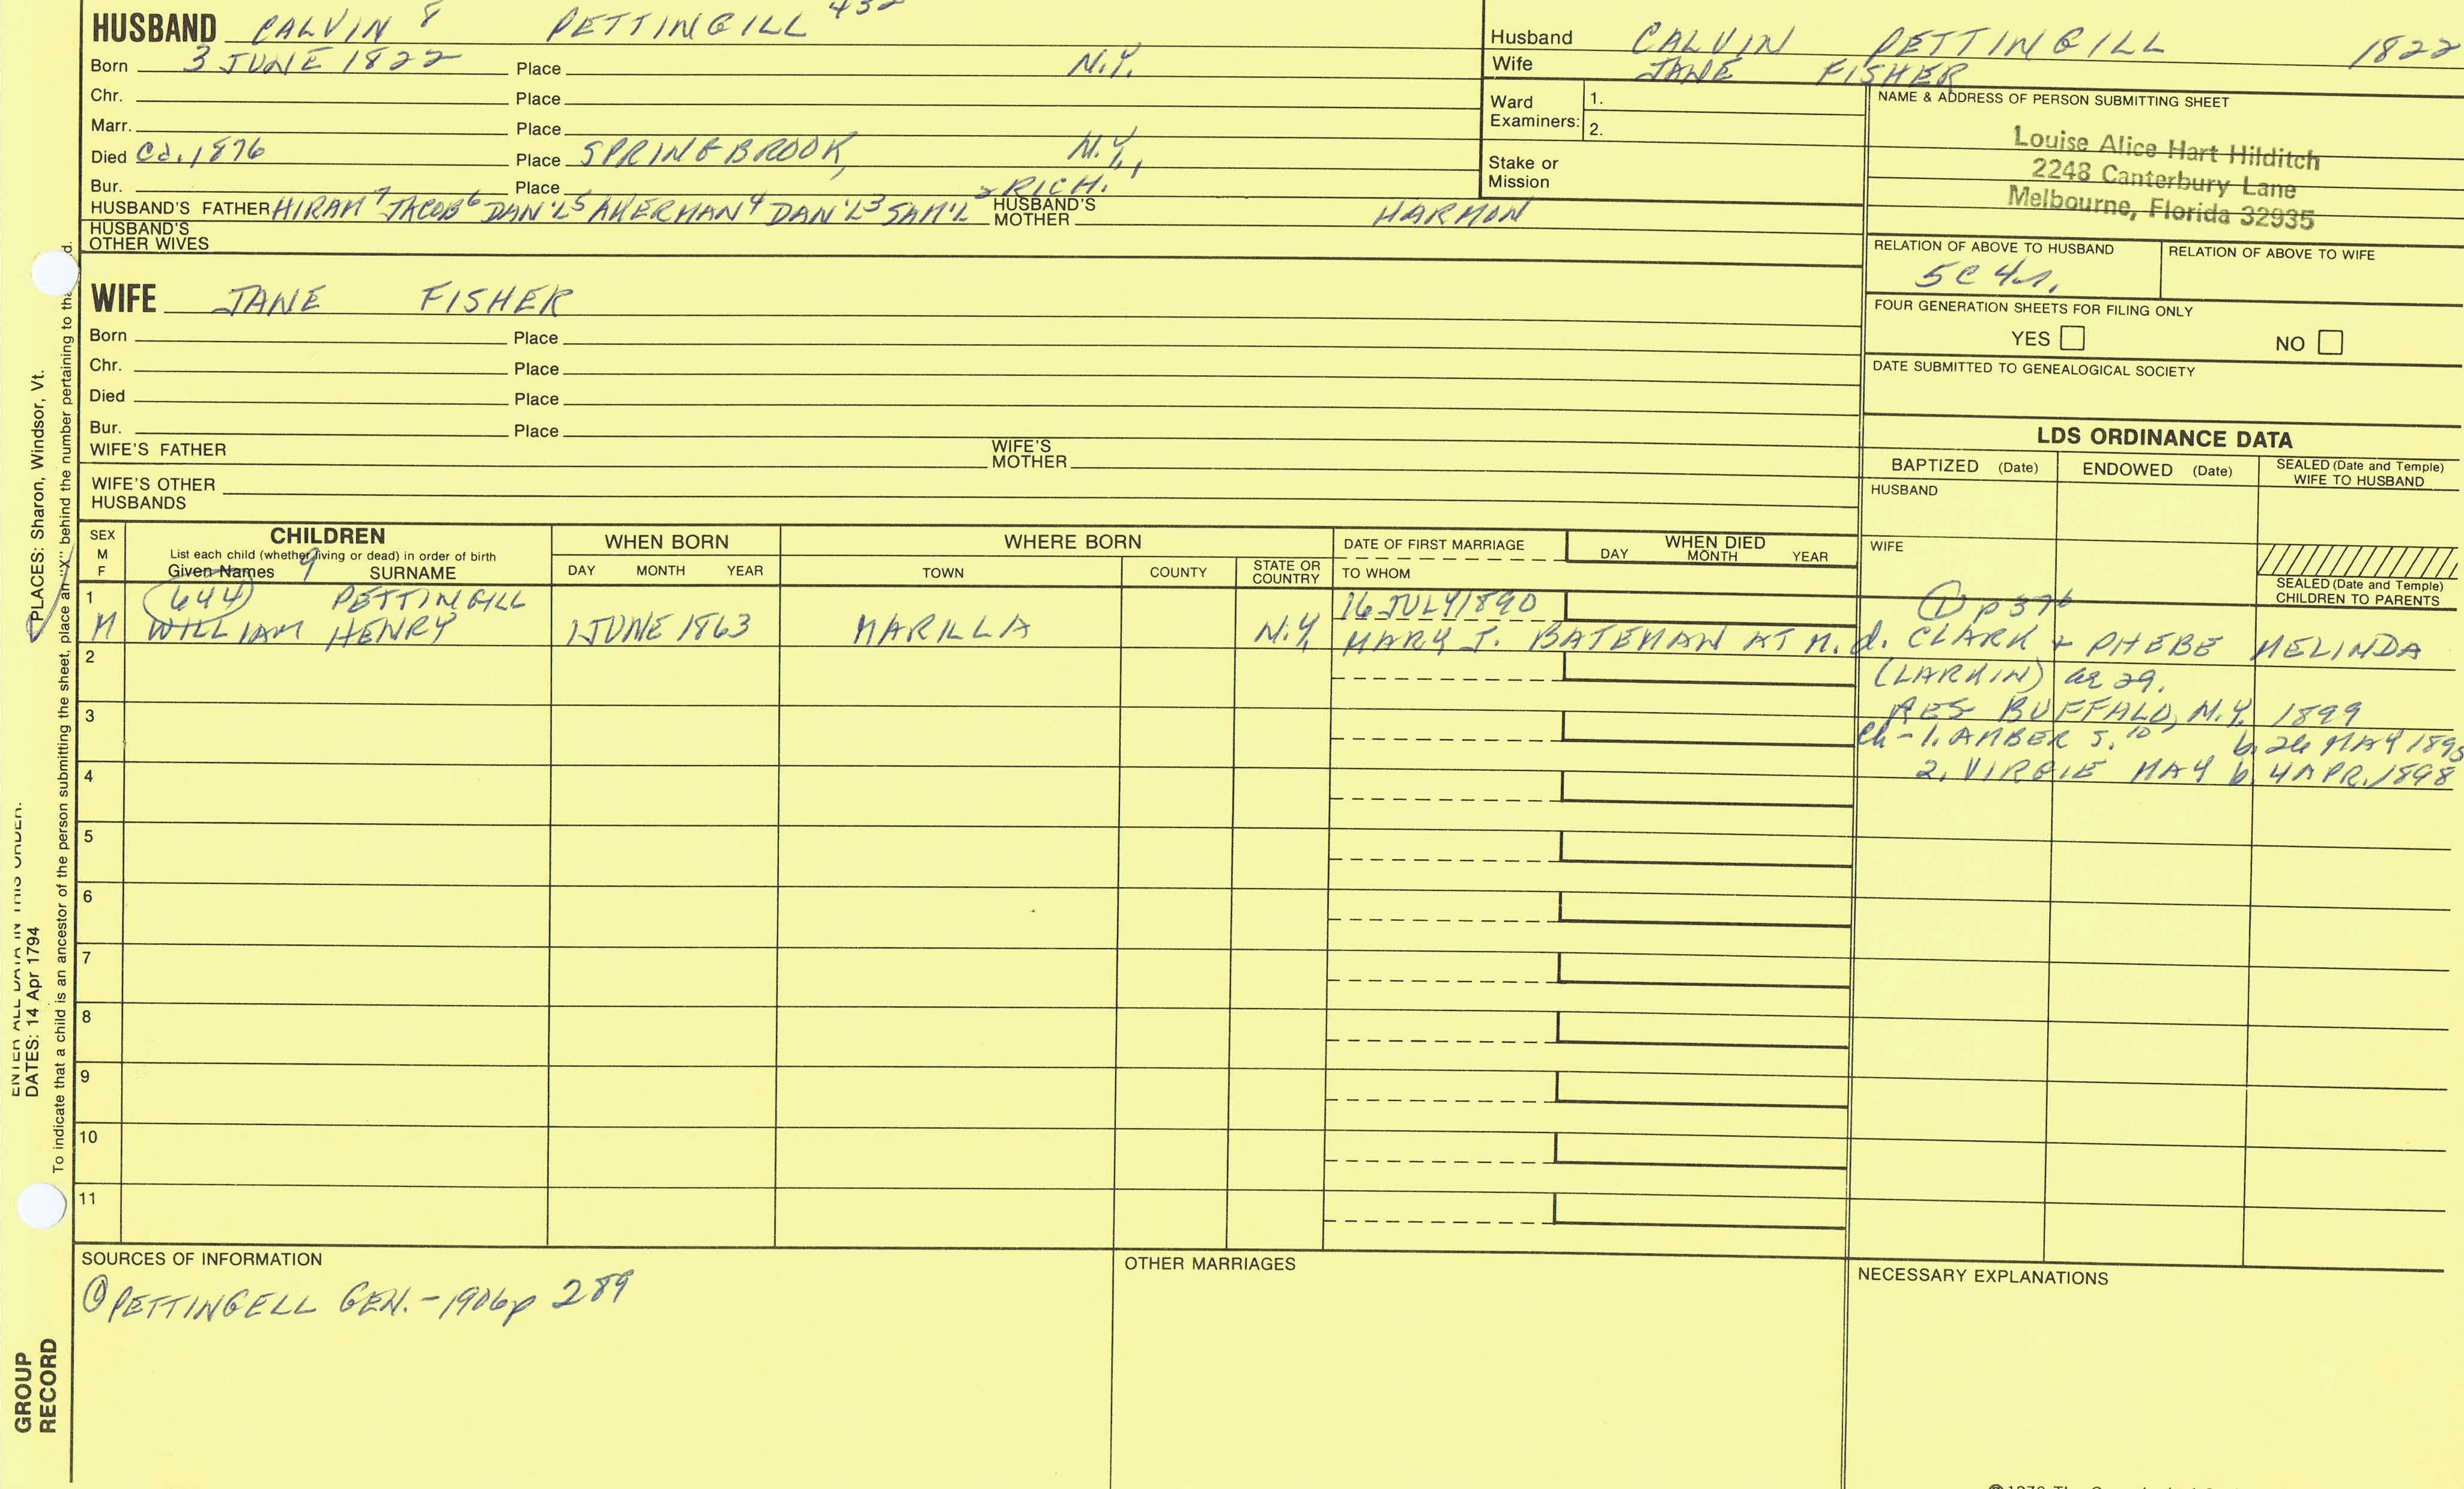 HUSBAND CALVIN 8 PETTINGILL
Born 3 JUNE 1822 Place N.Y.
Chr. Place
Marr. Place
Died Ca. 1876 Place SPRINGBROOK, N.Y.
Bur. Place
HUSBAND'S FATHER HIRAM 7 JACOB 6 DAN'L 5 AKERMAN 4 DAN'L 3 SAM'L 2 RICH. 1 HUSBAND'S MOTHER HARMON
HUSBAND'S OTHER WIVES
Husband CALVIN PETTINGILL 1822
Wife JANE FISHER
Ward Examiners: 1.
2.
Stake or Mission
NAME & ADDRESS OF PERSON SUBMITTING SHEET
Louise Alice Hart Hilditch
2248 Canterbury Lane
Melbourne, Florida 32935
RELATION OF ABOVE TO HUSBAND RELATION OF ABOVE TO WIFE
5C 4r.
FOUR GENERATION SHEETS FOR FILING ONLY
YES NO
DATE SUBMITTED TO GENEALOGICAL SOCIETY
WIFE JANE FISHER
Born Place
Chr. Place
Died Place
Bur. Place
WIFE'S FATHER WIFE'S MOTHER
WIFE'S OTHER HUSBANDS
LDS ORDINANCE DATA
BAPTIZED (Date) ENDOWED (Date) SEALED (Date and Temple) WIFE TO HUSBAND
HUSBAND
WIFE
SEALED (Date and Temple) CHILDREN TO PARENTS
SEX M F
CHILDREN
List each child (whether living or dead) in order of birth
Given Names 9 SURNAME
WHEN BORN
DAY MONTH YEAR
WHERE BORN
TOWN COUNTY STATE OR COUNTRY
DATE OF FIRST MARRIAGE
TO WHOM
WHEN DIED
DAY MONTH YEAR
1 644 PETTINGILL 16 JULY 1890 1 p 376
M WILLIAM HENRY 1 JUNE 1863 MARILLA N.Y. MARY J. BATEMAN AT M. d. CLARK + PHEBE MELINDA
2 (LARKIN) ae 29.
3 RES BUFFALO, N.Y. 1899
Ch - 1. AMBER J. 10 b. 26 MAY 1895
4 2. VIRGIE MAY b. 4 APR. 1898
5
6
7
8
9
10
11
SOURCES OF INFORMATION
1 PETTINGELL GEN. - 1906 p 289
OTHER MARRIAGES
NECESSARY EXPLANATIONS
DATES: 14 Apr 1794
PLACES: Sharon, Windsor, Vt.
To indicate that a child is an ancestor of the person submitting the sheet, place an "X" behind the number pertaining to
GROUP
RECORD